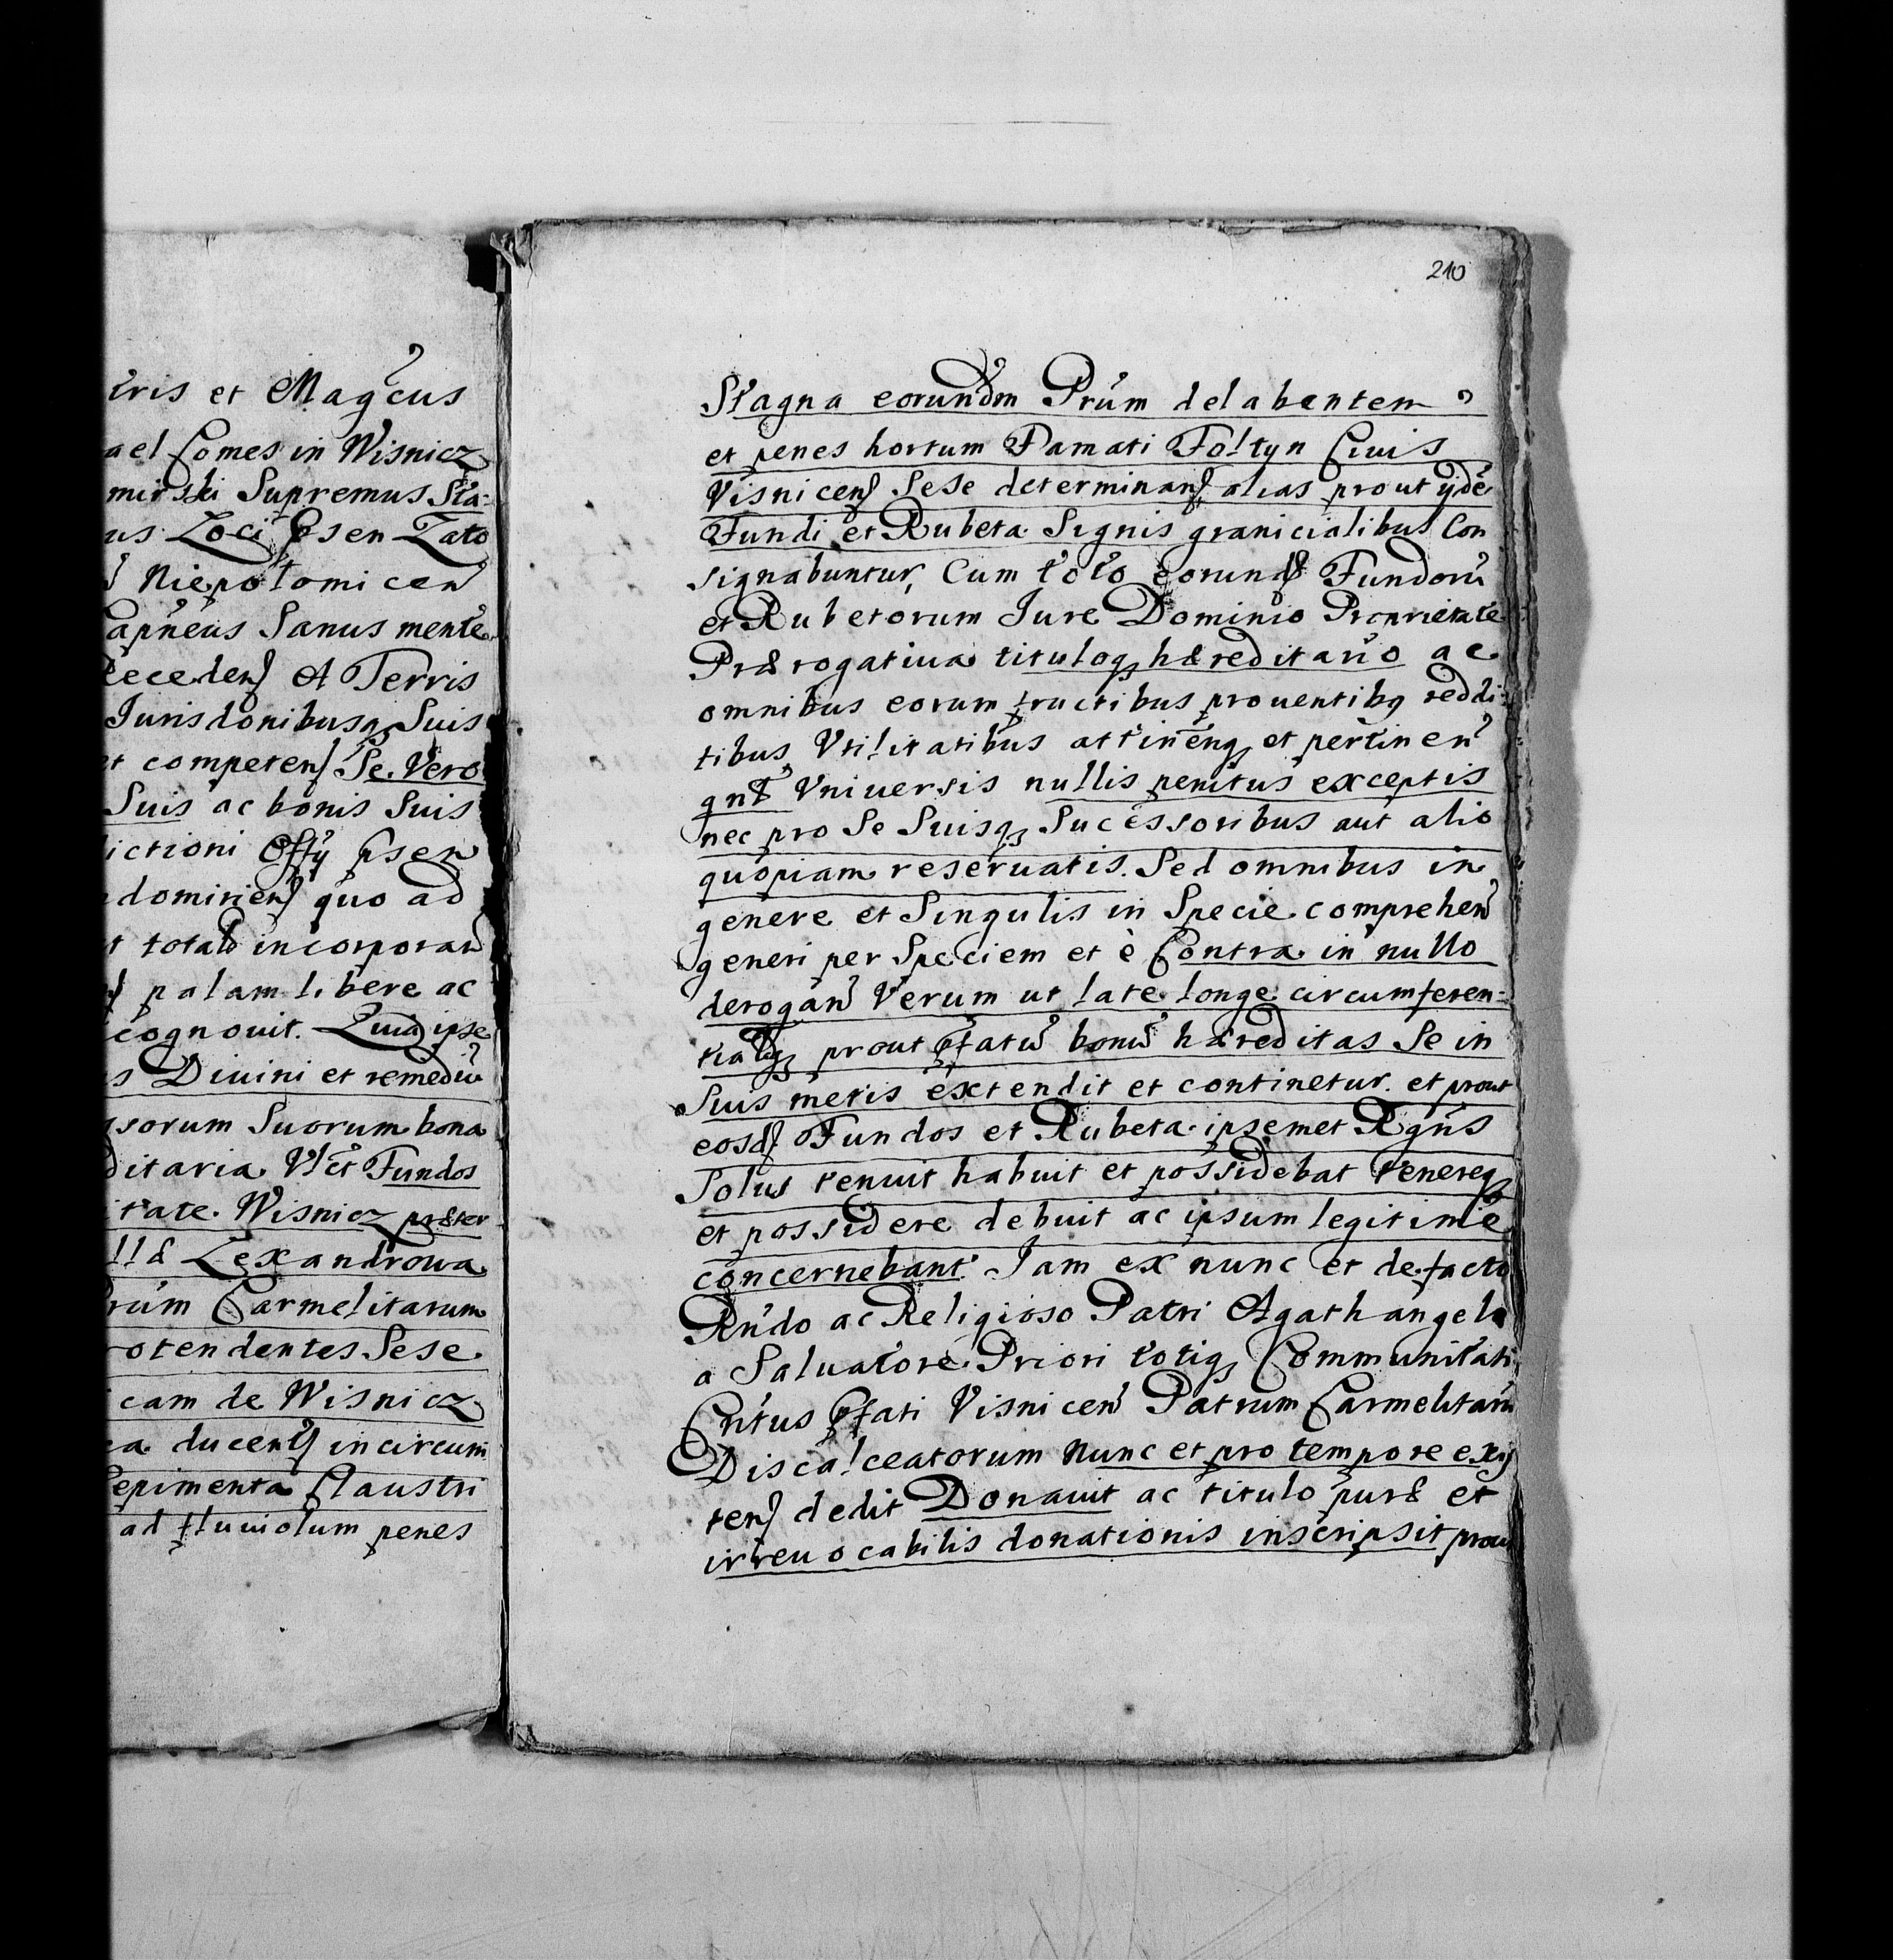 iris et Magcus
ael Comes in Wisnicz
mirski Supremus Sta=
us Loci Psen Zato
Niepolomicen
apneus Sanus mente
Recedens A Terris
Jurisdonibusq Suis
et competens Se Vero
Suis ac bonis Suis
ictioni Offy psen
domirien quo ad
t totalr incorporan
palam libere ac
cognouit. Quia ipse
s Diuini et remediu
ssorum Suorum bona
ditaria Vlct Fundos
itate Wisnicz præter
llæ Lexandrowa
rum Carmelitarum
rotendentes Sese
icam de Wisnicz
ea ducents in circum
Sepimenta Claustri
ad fluuiolum penes
210
Stagna eorundm Prum delabentem
et penes hortum Famati Foltyn Ciuis
Visnicens Sese determinans alias prout ijde
Fundi et Rubeta Signis granicialibus Con
signabuntur, Cum toto eorund Fundoru
et Rubetorum Jure Dominio Proprietate
Prærogatiua tituloq hæreditario ac
omnibus eorum fructibus prouentibq reddi=
tibus Vtilitatibus attinenq et pertinen
qnt Vniuersis nullis penitus exceptis
nec pro Se Suisq Sucessoribus aut alio
quopiam reseruatis. Sed omnibus in
genere et Singulis in Specie comprehen
generi per Speciem et è Contra in nullo
derogan Verum ut late longe circumferen=
tialrq prout pfatu bonu hæreditas Se in
Suis metis extendit et continetur et prout
eosd Fundos et Rubeta ipsemet Rgns
Solus tenuit habuit et possidebat tenereq
et possidere debuit ac ipsum legitime
concernebant Jam ex nunc et de facto
Rndo ac Religioso Patri Agathangelo
a Saluatore Priori totiq Communitati
Cntus pfati Visnicen Patrum Carmelitaru
Discalceatorum nunc et pro tempore exis
tens dedit Donauit ac titulo puræ et
irreuocabilis donationis inscripsit prout